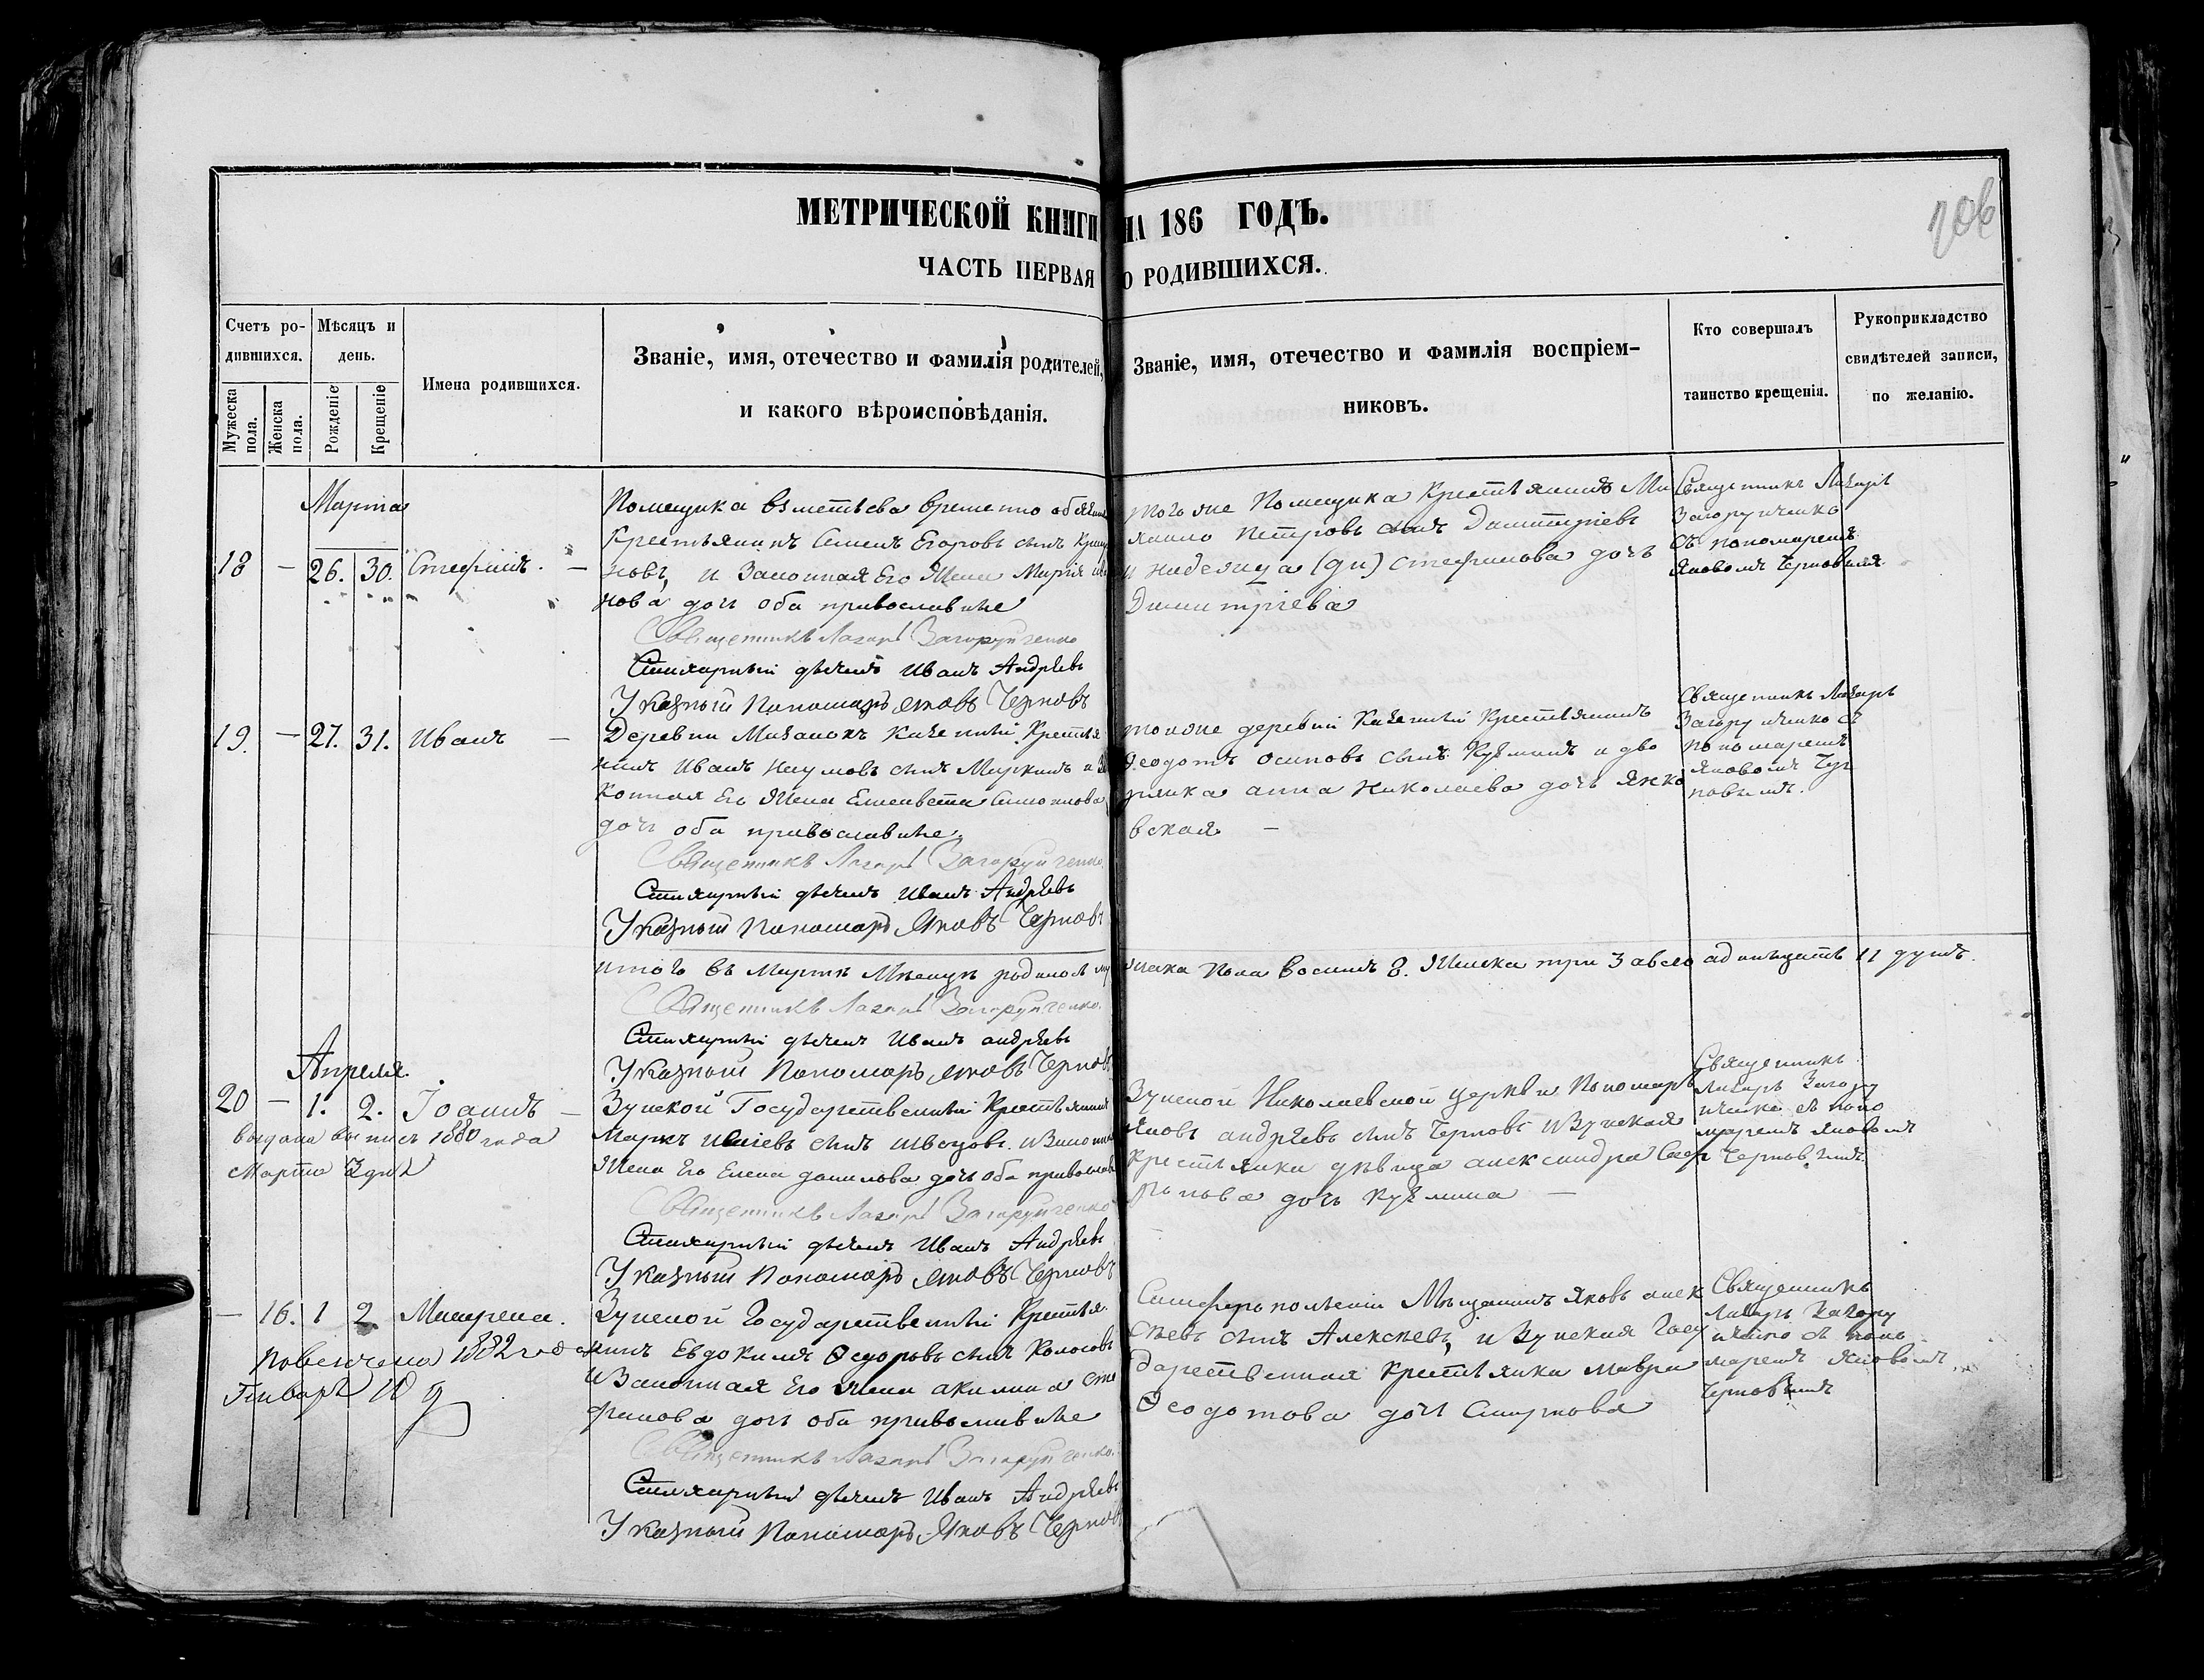 МЕТРИЧЕСКОЙ КНИГИ НА 186 ГОДЪ.
ЧАСТЬ ПЕРВАЯ О РОДИВШИХСЯ.
Счетъ родившихся.
Мужеска пола.
Женска пола.
Мѣсяцъ и день.
Рожденіе
Крещеніе
Имена родившихся.
Званіе, имя, отечество и фамилія родителей,
и какого вѣроисповѣданія.
Званіе, имя, отечество и фамилія воспріем-
никовъ.
Кто совершалъ
таинство крещенія.
Рукоприкладство
свидѣтелей записи,
по желанію.
Марта
18 – 26. 30. Стефанъ. –
Помещика временно
Крестьянинъ Семенъ Егоровъ сынъ
новъ, и Законная Его Жена Марія
нова дочь оба православные
Священникъ Лазарь Загоруйченко
Стихарный дьячекъ Иванъ Андрѣевъ
Указный Пономарь Яковъ Черновъ
того же Помещика Крестьянинъ Ми
хаило Петровъ сынъ Димитріевъ
и (ди) Стефанова дочь
Димитріева
Священникъ Лазарь
Загоруйченко
съ пономаремъ
Яковомъ Черновымъ
19. – 27. 31. Иванъ –
Деревни Крестья
нинъ Иванъ Наумовъ сынъ Маркинъ и За
конная Его Жена Елисавета Симонова
дочь оба православные
Священникъ Лазарь Загоруйченко
Стихарный дьячекъ Иванъ Андрѣевъ
Указный Пономарь Яковъ Черновъ
тоиже деревни Крестьянинъ
Ѳеодотъ Осиповъ сынъ Кузминъ и дво
рянка Анна Николаева дочь Янко
вская –
Священникъ Лазарь
Загоруйченко съ
пономаремъ
Яковомъ Чер
новымъ.
итого въ Мартѣ Мѣсяцѣ родилось му
жеска пола восимъ 8. Женска три 3 авсего адинъцать 11 душъ.
Священникъ Лазарь Загоруйченко.
Стихарный дьячекъ Иванъ Андрѣевъ
Указный Пономарь Яковъ Черновъ
Апреля.
20 – 1. 2. Іоаннъ –
выдана выпись 1880 года
Марта 3 дня
Зуйской Государственный Крестьянинъ
Маркъ сынъ Швецовъ. и Законная
Жена Его Елена Данилова дочь оба православ
Священникъ Лазарь Загоруйченко
Стихарный дьячекъ Иванъ Андрѣевъ
Указный Пономарь Яковъ Черновъ
Зуйской Николаевской Церкви Пономарь
Яковъ Андрѣевъ сынъ Черновъ и Зуйская
Крестьянка дѣвица Александра
дочь Кузмина –
Священникъ
Лазарь Загору
йченко съ поно
маремъ Яковомъ
Черновымъ.
– 16. 1 2. Матрена.
повенчена 1882 года
Генваря 10 д
Зуйской Государственный Крестья
нинъ Евдокимъ Ѳедоровъ сынъ Колосовъ
и Законная Его Жена Акилина Сте
фанова дочь оба православные
Священникъ Лазарь Загоруйченко.
Стихарный дьячекъ Иванъ Андрѣевъ
Указный Пономарь Яковъ Черновъ
Симферопольскій Мѣщанинъ Яковъ Алек
сѣевъ сынъ Алексѣевъ, и Зуйская Госу
дарственная Крестьянка Мавра
Ѳеодотова дочь Смирнова
Священникъ
Лазарь Загору
йченко съ поно
маремъ Яковомъ
Черновымъ